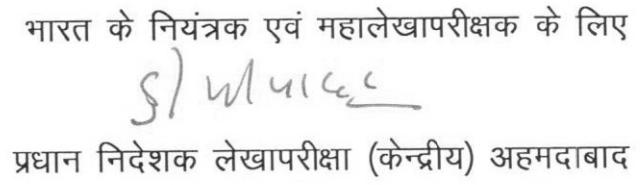 भारत के नियंत्रक एवं महालेखापरीक्षक के लिए
प्रधान निदेशक लेखापरीक्षा (केन्द्रीय) अहमदाबाद